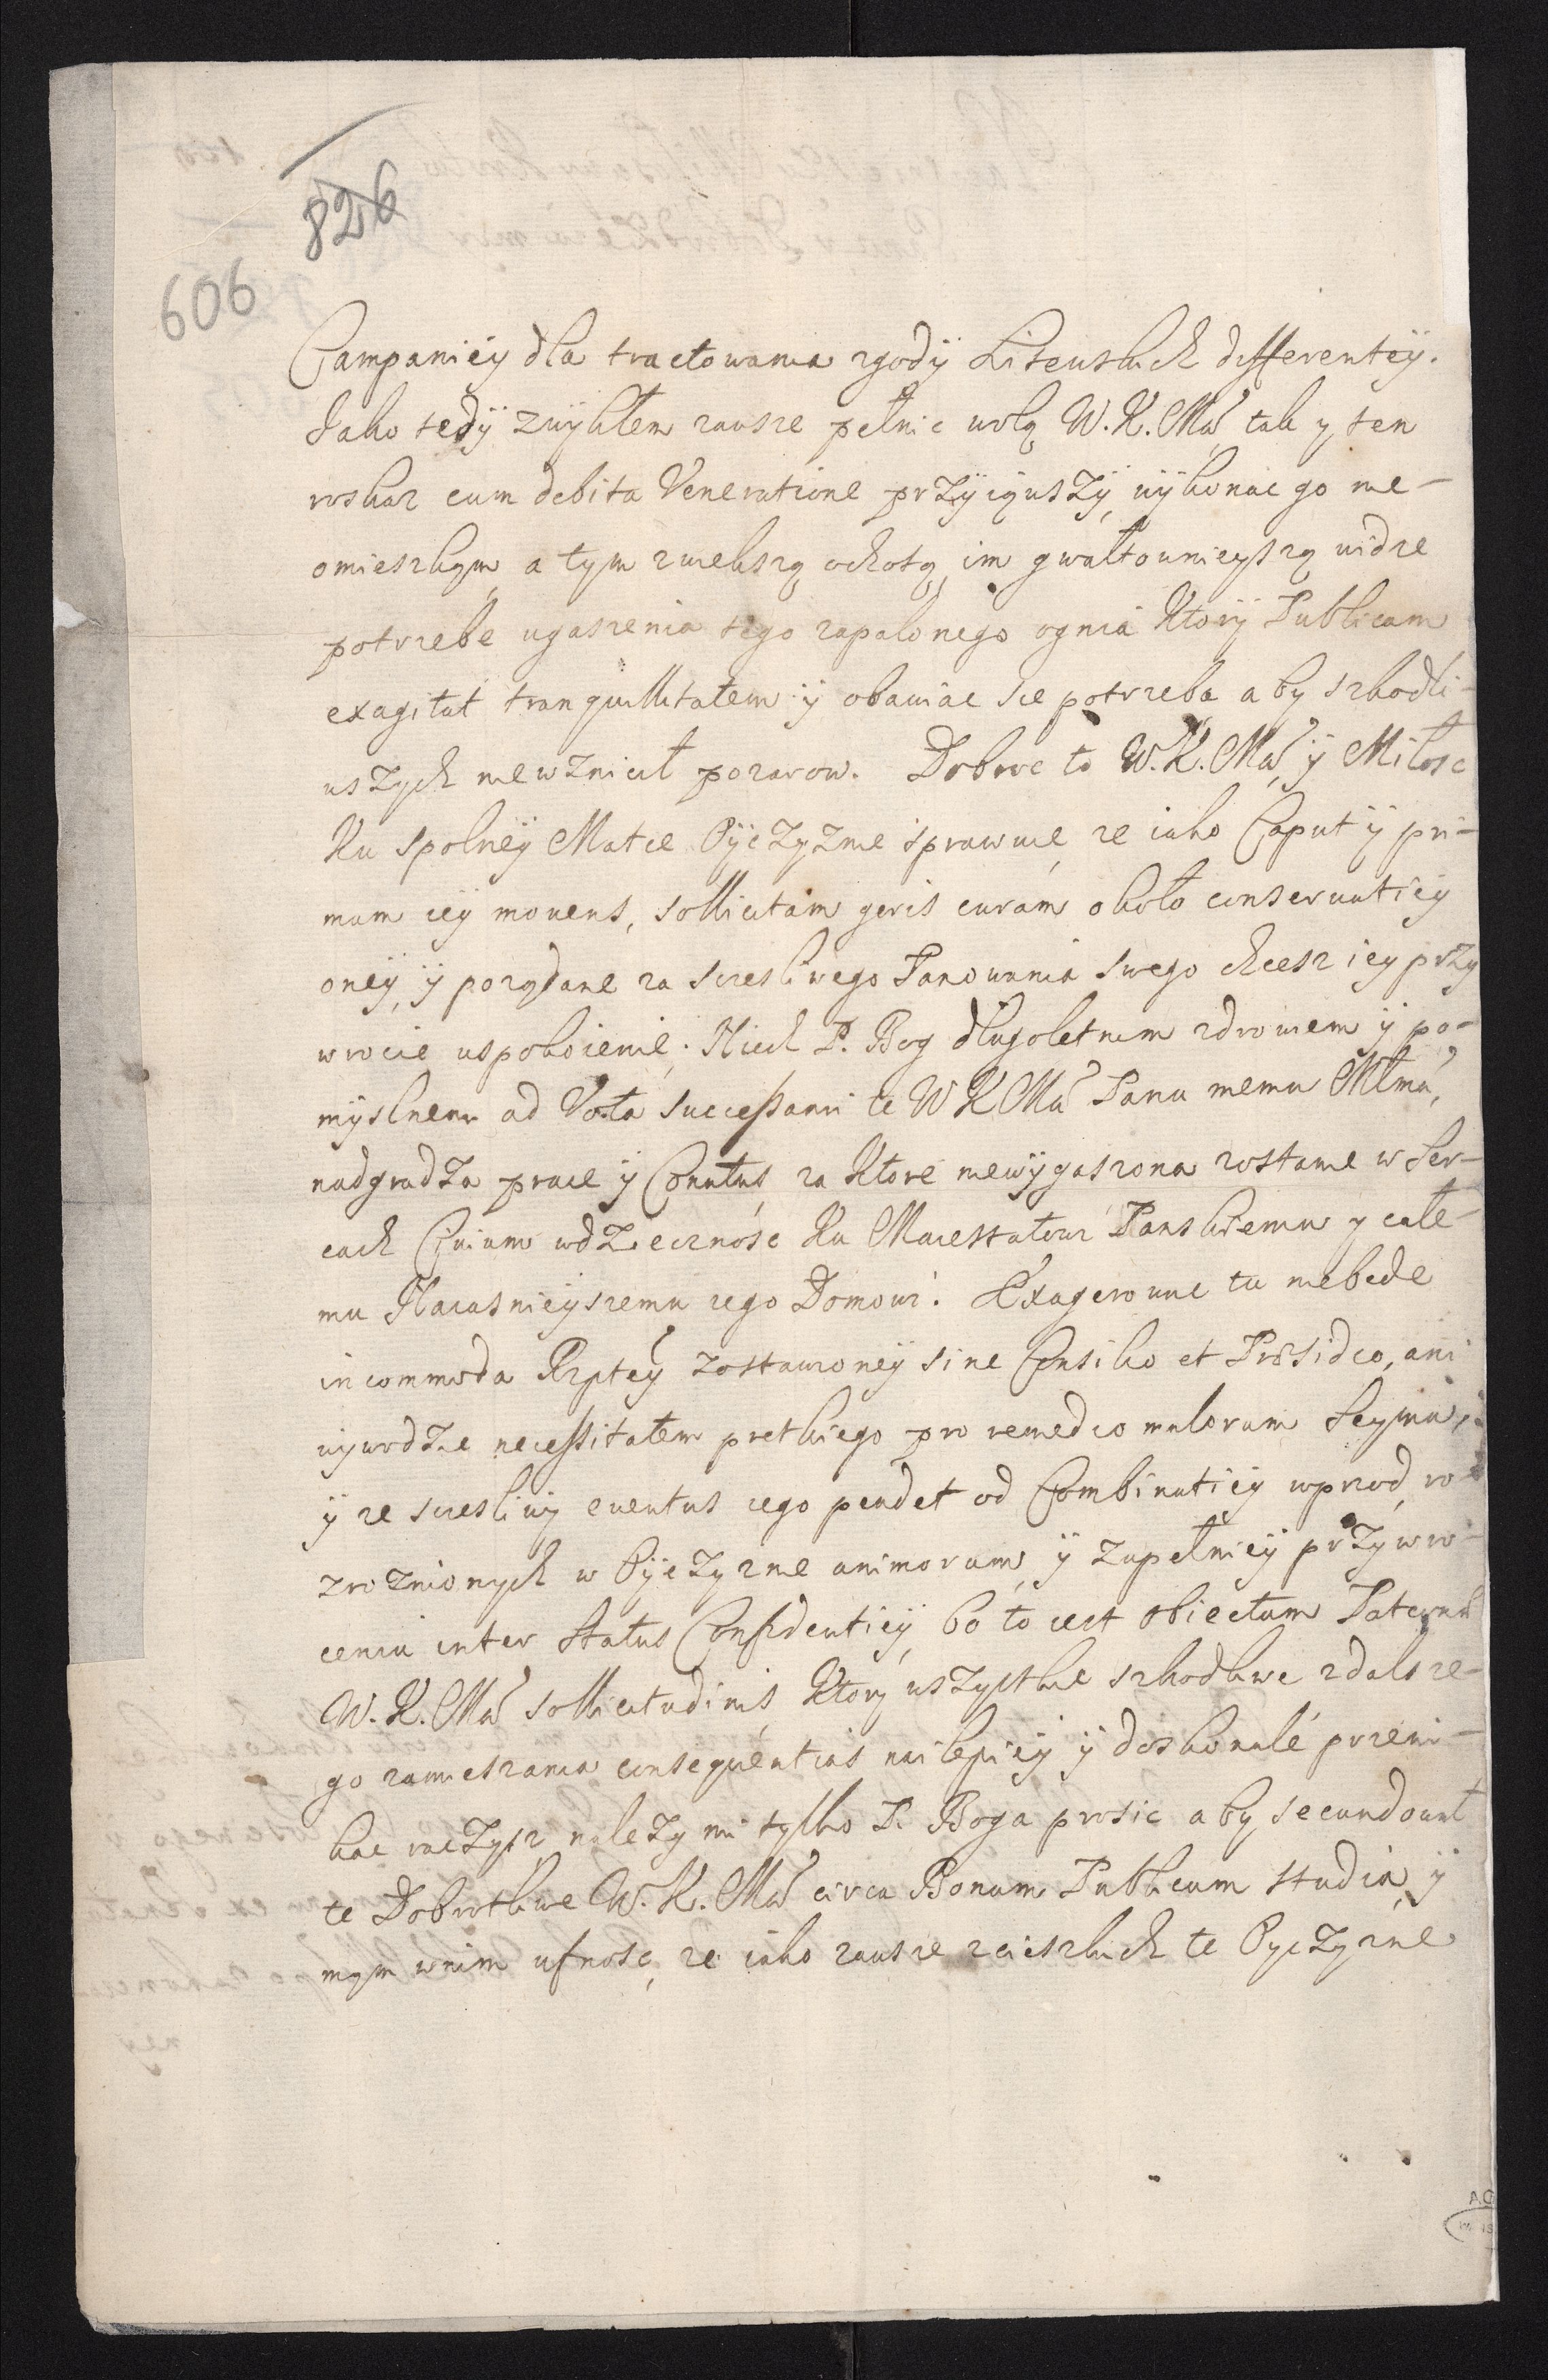 826
606
Campaniey dla tractowania zgody Litewskich differentiy.
Jako tedy zwykłem zawsze pełnić wolą W. K. Mći tak y ten
roskaz cum debita Veneratione przyiąwszy, wykonać go nie-
omieszkam, a tym zwiekszą ochotą, im gwałtownieyszą widze
potrzebe ugaszenia tego zapalonego ognia Ktory Publicam
exagitat tranquillitatem y obawiać sie potrzeba aby szkodli-
wszych niewzniecił pozarow. Dobroć to W. K. Mći y Miłosc
Ku spolney Matce Oyczyznie sprawuie, ze iako Caput y pri-
mum iey movens, sollicitam geris curam około conservatiey
oney, y porządane za sczesliwego Panowania swego chcesz iey przy
wrocic uspokoienie; Niech P. Bog długoletnim zdrowiem y po-
myslnemi ad Vota successami te W K Mći Panu memu Młmu,
nadgradza prace y Conatus, za Ktore niewygaszona zostanie w Ser-
cach Civium wdzięcznosc Ku Maiestatowi Panskiemu y całe-
mu Naiasnieyszemu iego Domowi. Exagerowac tu niebede
incommoda Rzptey zostawioney sine Consilio et Præsidio, ani
wywodze necessitatem pretkiego pro remedio malorum Seymu,
y ze sczesliwy eventus iego pendet od Combinatiey wprzod ro-
zroznionych w Oyczyznie animorum, y zupełniey przywro-
cenia inter Status Confidentiey, bo to iest obiectum Paternæ
W. K. Mći sollicitudinis, Ktory wszystkie szkodliwe zdalsze-
go zamieszania consequentias nailepiey y doskonale przeni-
kac raczysz, nalezy mi tylko P. Boga prosic aby secundował
te Dobrotliwe W. K. Mći circa Bonum Publicum studia, y
mam wnim ufnosc, ze iako zawsze zcieszkich te Oyczyzne